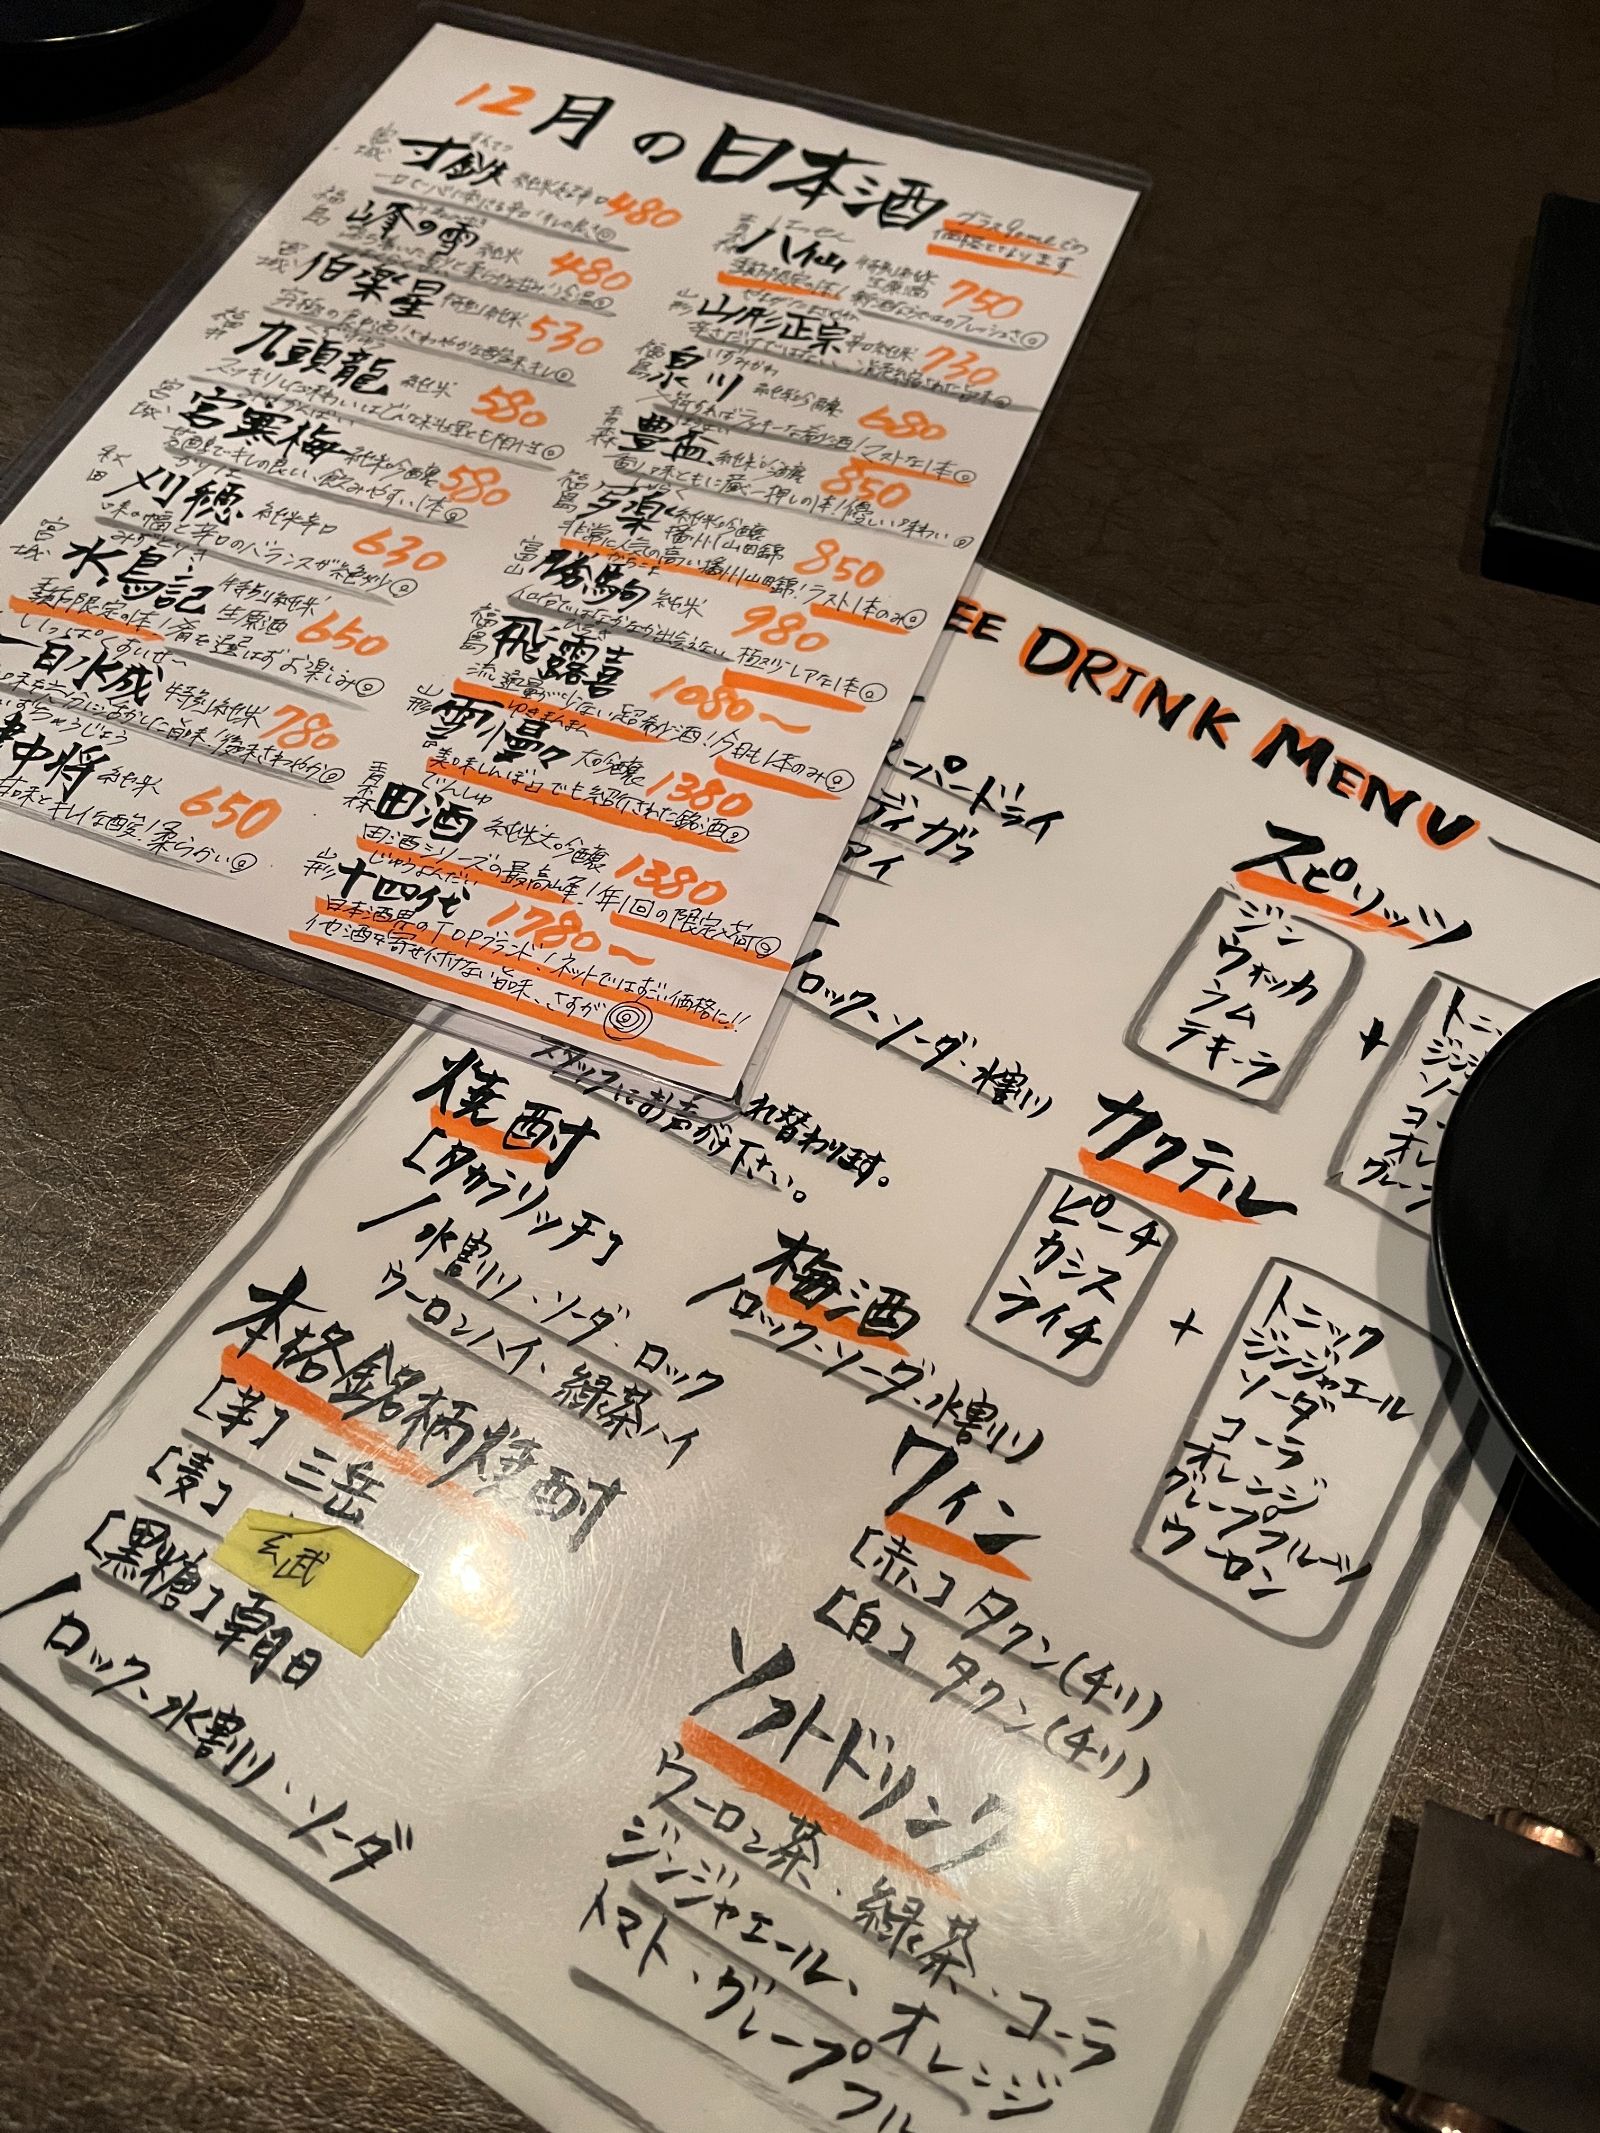 12月の日本酒
グラス90mlでの
価格となります
宮城
寸鉄 純米超辛口 480
福島
山峯の雪 純米 480
宮城
伯楽星 特別純米 530
究極の食中酒!さわやかな酸味とキレ◎
福井
九頭龍 純米 580
スッキリした味わいはどんな料理とも相性◎
宮城
宮寒梅 純米吟醸 580
キレの良い、飲みやすい1本◎
秋田
刈穂 純米辛口 630
味の幅と辛口のバランスが絶妙◎
宮城
みずとりき
水鳥記 特別純米
生原酒 650
季節限定の1本!肴を選ばずお楽しみ◎
一白水成 特別純米 780
後味さわやか◎
中将 純米 650
柔らかい◎
青森
八仙 特別純米
生原酒 750
季節限定の1本!新酒ならではのフレッシュさ◎
山形
山形正宗 辛口純米 730
福島
いずみかわ
泉川 純米吟醸 680
入荷すればラッキーな希少酒!マストな1本◎
青森
豊盃 純米吟醸 850
香り味ともに蔵一押しの1本!優しい味わい◎
福島
しゃらく
寫楽 純米吟醸
播州山田錦 850
非常に人気の高い播州山田錦!ラスト1本のみ◎
富山
かちこま
勝駒 純米 980
仙台ではなかなか出会えない極スーパーレアな1本◎
福島
ひろき
飛露喜 1080〜
流通量が少ない超希少酒!今日も1本のみ◎
山形
ゆきまんまん
雪漫々 大吟醸 1380
美味しんぼ でも紹介された銘酒◎
青森
でんしゅ
田酒 純米大吟醸 1380
田酒シリーズの最高峰!年1回の限定入荷◎
山形
じゅうよんだい
十四代 1780〜
日本酒界のTOPブランド!ネットではすごい価格に!!
他酒を寄せ付けない旨味、さすが◎
EE DRINK MENU
ーパードライ
ディガフ
アイ
/ロック・ソーダ・水割り
れ替わります。
スタッフにお声がけ下さい。
焼酎
[タカラリッチ]
/水割り、ソーダ・ロック
ウーロンハイ、緑茶ハイ
本格銘柄焼酎
[芋] 三岳
[麦] 玄武
[黒糖] 朝日
/ロック、水割り、ソーダ
梅酒
/ロック・ソーダ・水割り
スピリッツ
ジン
ウォッカ
ラム
テキーラ
+
トニ
ジンジ
ソー
コー
オレ
グレープ
カクテル
ピーチ
カシス
ライチ
+
トニック
ジンジャエール
ソーダ
コーラ
オレンジ
グレープフルーツ
ウーロン
ワイン
[赤] タクン(チリ)
[白] タクン(チリ)
ソフトドリンク
ウーロン茶・緑茶、コーラ
ジンジャエール、オレンジ
トマト、グレープフル